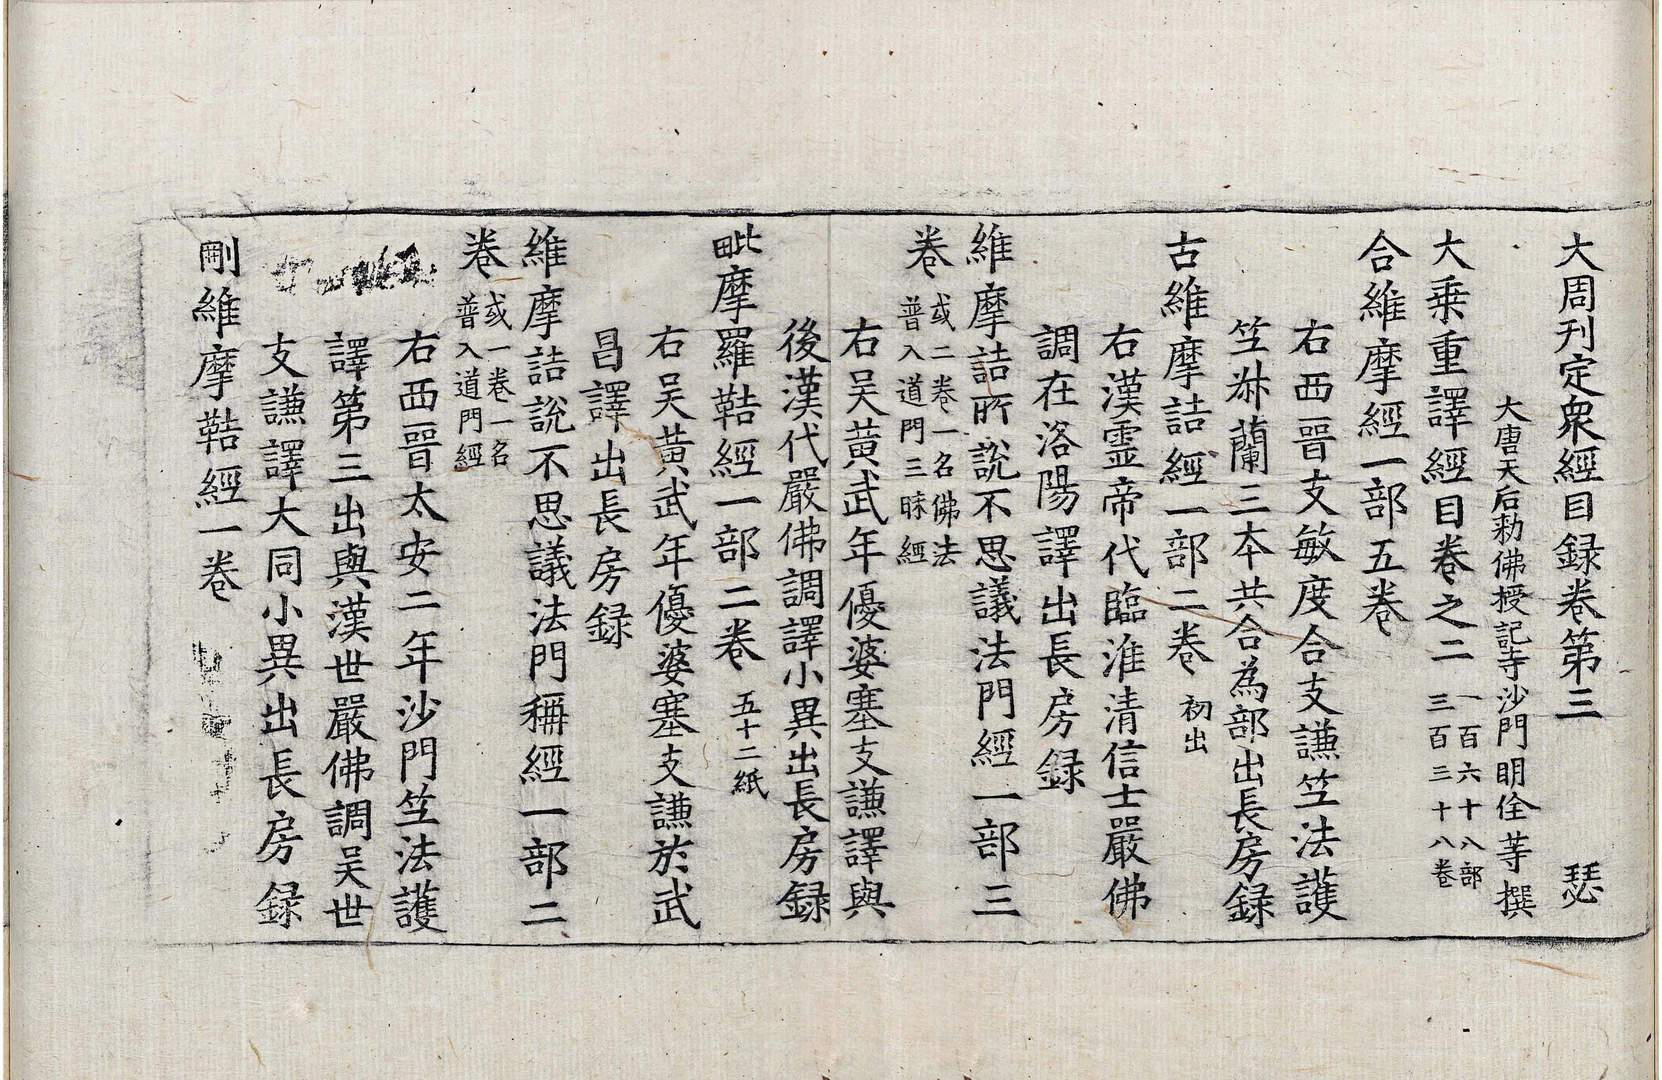 大周刊定衆經目録卷第三 瑟
大唐天后勑佛授記寺沙門明佺等撰
大乗重譯經目卷之二 一百六十八部
三百三十八卷
合維摩經一部五卷
右西晉支敏度合支謙竺法護
竺㳤蘭三本共合為部出長房録
古維摩詰經一部二卷 初出
右漢靈帝代臨淮清信士嚴佛
調在洛陽譯出長房録
維摩詰所說不思議法門經一部三
卷 或二卷一名佛法
普入道門三昧經
右吴黃武年優婆塞支謙譯與
後漢代嚴佛調譯小異出長房録
毗摩羅鞊經一部二卷 五十二紙
右吴黃武年優婆塞支謙於武
昌譯出長房録
維摩詰說不思議法門稱經一部二
卷 或一卷一名
普入道門經
右西晉太安二年沙門竺法護
譯第三出與漢世嚴佛調吴世
支謙譯大同小異出長房録
刪維摩鞊經一卷